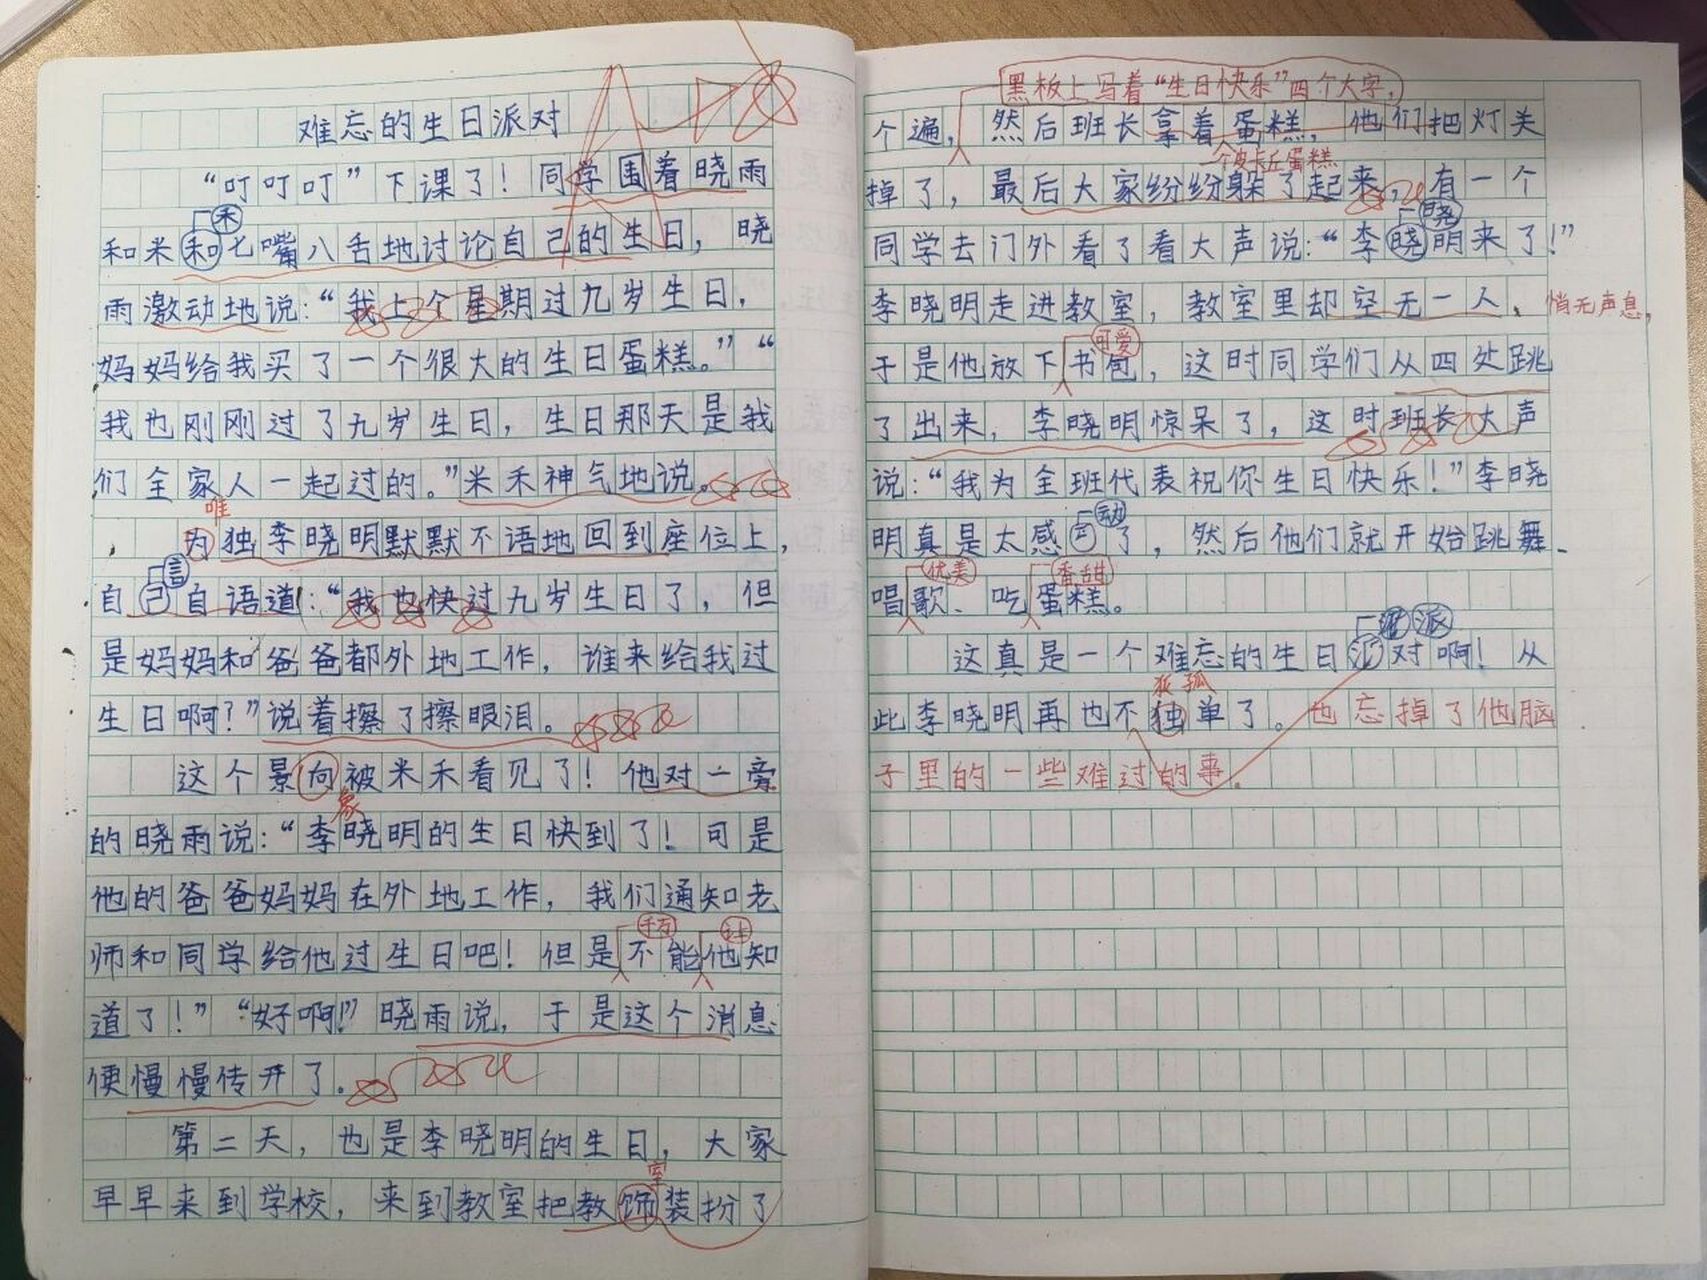 难忘的生日派对
“叮叮叮”下课了！同学围着晓雨
禾
和米和七嘴八舌地讨论自己的生日，晓
雨激动地说：“我上个星期过九岁生日，
妈妈给我买了一个很大的生日蛋糕。”“
我也刚刚过了九岁生日，生日那天是我
们全家人一起过的。”米禾神气地说。
唯
为独李晓明默默不语地回到座位上，
言
自己自语道：“我也快过九岁生日了，但
是妈妈和爸爸都外地工作，谁来给我过
生日啊？”说着擦了擦眼泪。
这个景向被米禾看见了！他对一旁
象
的晓雨说：“李晓明的生日快到了！可是
他的爸爸妈妈在外地工作，我们通知老
千万 让
师和同学给他过生日吧！但是不能他知
道了！”“好啊！”晓雨说，于是这个消息
便慢慢传开了。
第二天，也是李晓明的生日，大家
室
早早来到学校，来到教室把教饰装扮了
黑板上写着“生日快乐”四个大字，
个遍，然后班长拿着蛋糕，他们把灯关
一个皮卡丘蛋糕
掉了，最后大家纷纷躲了起来，有一个
晓
同学去门外看了看大声说：“李晓明来了！”
李晓明走进教室，教室里却空无一人、悄无声息，
可爱
于是他放下书包，这时同学们从四处跳
了出来，李晓明惊呆了，这时班长大声
说：“我为全班代表祝你生日快乐！”李晓
动
明真是太感了，然后他们就开始跳舞、
优美 香甜
唱歌、吃蛋糕。
派
这真是一个难忘的生日对啊！从
孤
此李晓明再也不独单了。也忘掉了他脑
子里的一些难过的事。